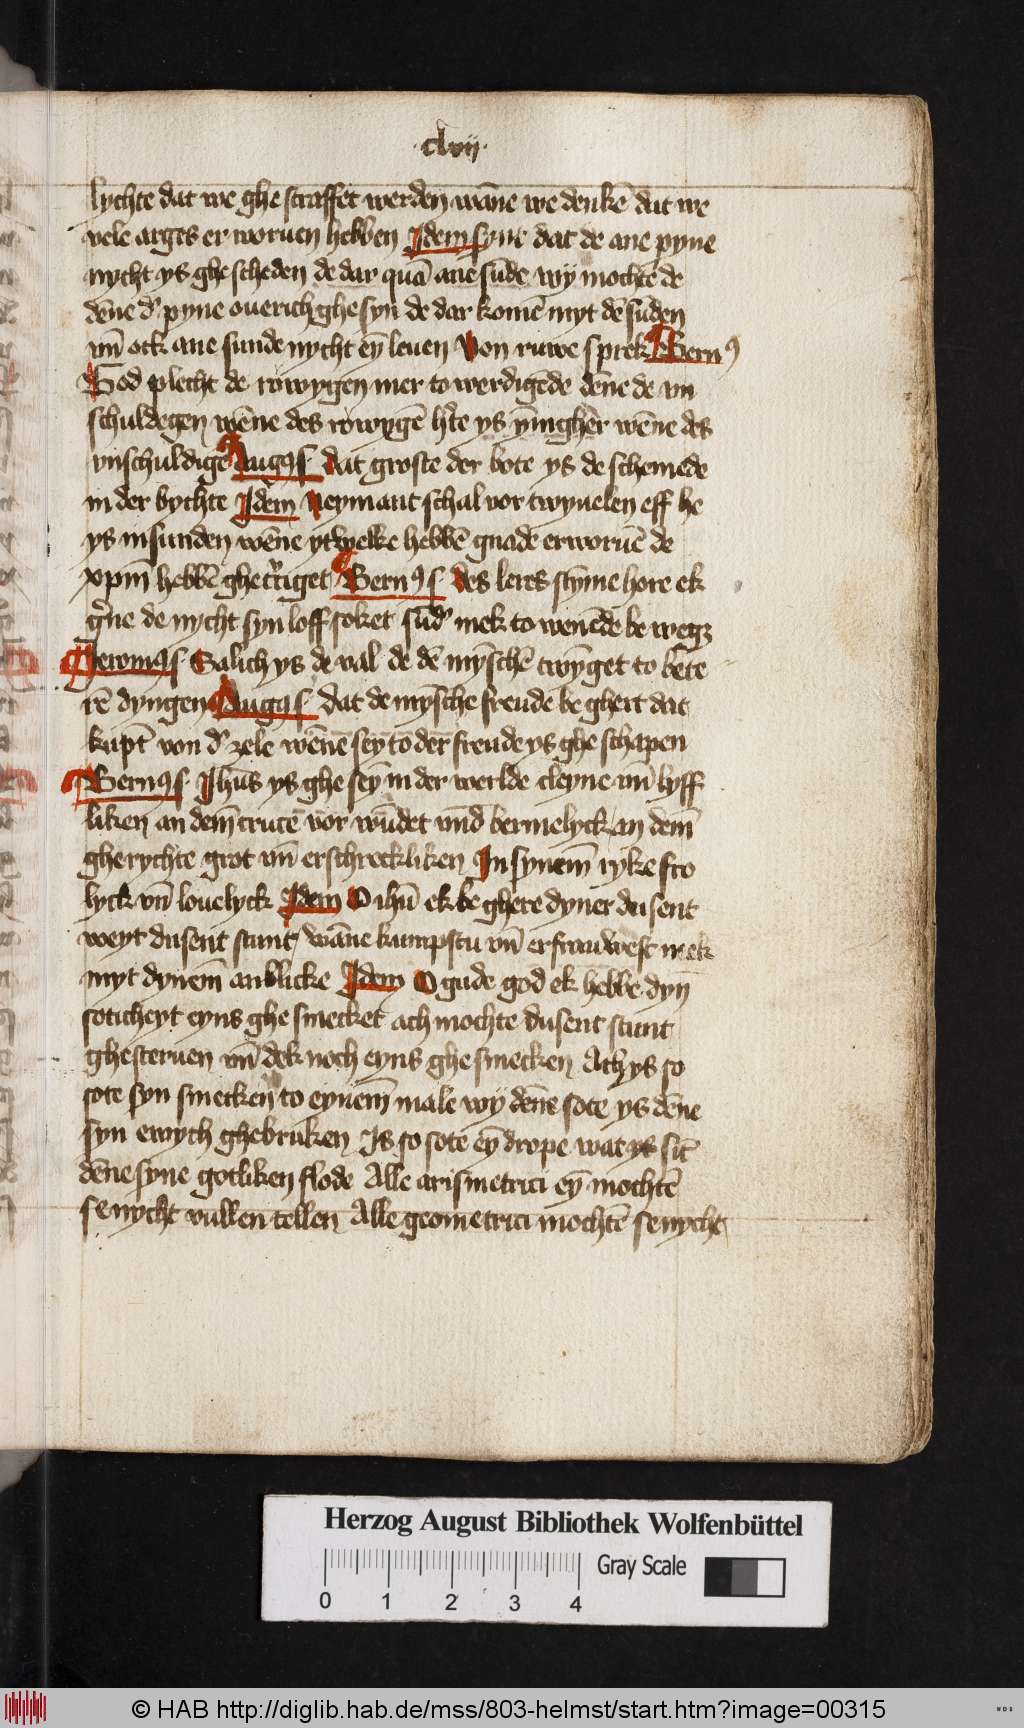 ·clvij·
lychte dat we ghe straffet werden wāne we denkē dat we
vele arges er woruen hebben Idem syne dat de ane pyne
nycht ys ghe scheden de dar quā ane sūde wÿ mochtē de
dēne d' pyne ouerich ghe syn de dar komē myt dē sūden
vn̄ ock ane sunde nycht eȳ leuen Von ruwe sprek Bern9
God plecht de rowygen mer to werdigēde dēne de vn
schuldegen wēne des rowygē h'te ys ȳnigher wēne des
vnschuldigē Aug9s dat groste der bote ys de schemede
in der bychte Idem Neymant schal vor twyuelen eff he
ys in sunden wēne ytwelke hebbē gnade erworuē de
xp̄m hebbē ghecr'tiget Bern9s des leres stȳme hore ek
g'ne de nycht syn loff soket sūd' mek to wenēde be wegꝫ
Ieronī9s Salich ys de val de dē mȳschē twȳget to bete
rē dyngen Aug9s dat de mȳsche freude be ghert dat
kūpt von d' zele wēnē sey to der freude ys ghe schapen
Bern9s Jhūs ys ghe seȳ in der werlde cleyne vn̄ lyff
liken an dem crucē vor wūdet vnd bermelyck an dem
gherychte grot vn̄ erschreckliken In synem ryke fro
lyck vn̄ louelyck Idem O ihū ek be ghere dyner dusent
weyt dusent stunt wāne kumpstu vn̄ erfrauwest mek
myt dynem anblicke Idem O gude god ek hebbe dyn
soticheyt eyns ghe smecket ach mochte dusent stunt
ghesteruen vn̄ dek noch eyns ghe smecken Ach ys so
sote syn smecken to eynem male wÿ dēne sote ys dēne
syn ewych ghebruken Is so sote eȳ drope wat ys sīt
dēne syne gotliken flode Alle arismetrici eȳ mochtē
se nycht vullen tellen Alle geometrici mochtē se nycht
Herzog August Bibliothek Wolfenbüttel
Gray Scale
0 1 2 3 4
© HAB http://diglib.hab.de/mss/803-helmst/start.htm?image=00315